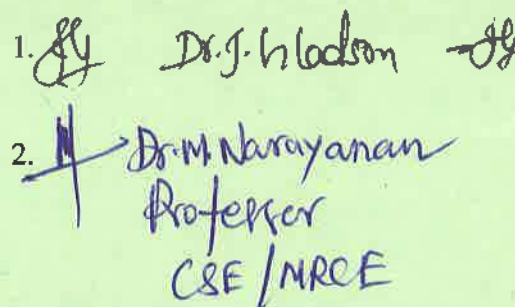 1. Dr. J. Gladson
2. Dr. M. Narayanan
Professor
CSE / MRCE